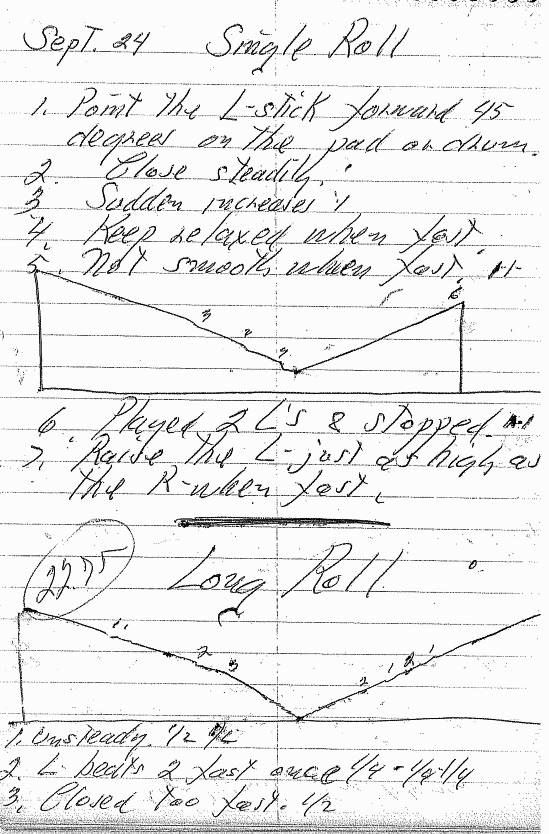 Sept. 24 Single Roll
1. Point the L-stick forward 45
degrees on the pad or drum.
2. Close steadily.
3 Sudden increases
4. Keep relaxed when fast.
5. Not smooth when fast.
3
2
6
6. Played 2 L's & stopped.
7. Raise the L-just as high as
the R-when fast.
22.75 Long Roll
2
3
2 1 2 1
1. Unsteady. 1/2
2. L beats 2 fast once 1/4 - 1/4 - 1/4
3. Closed too fast. 1/2